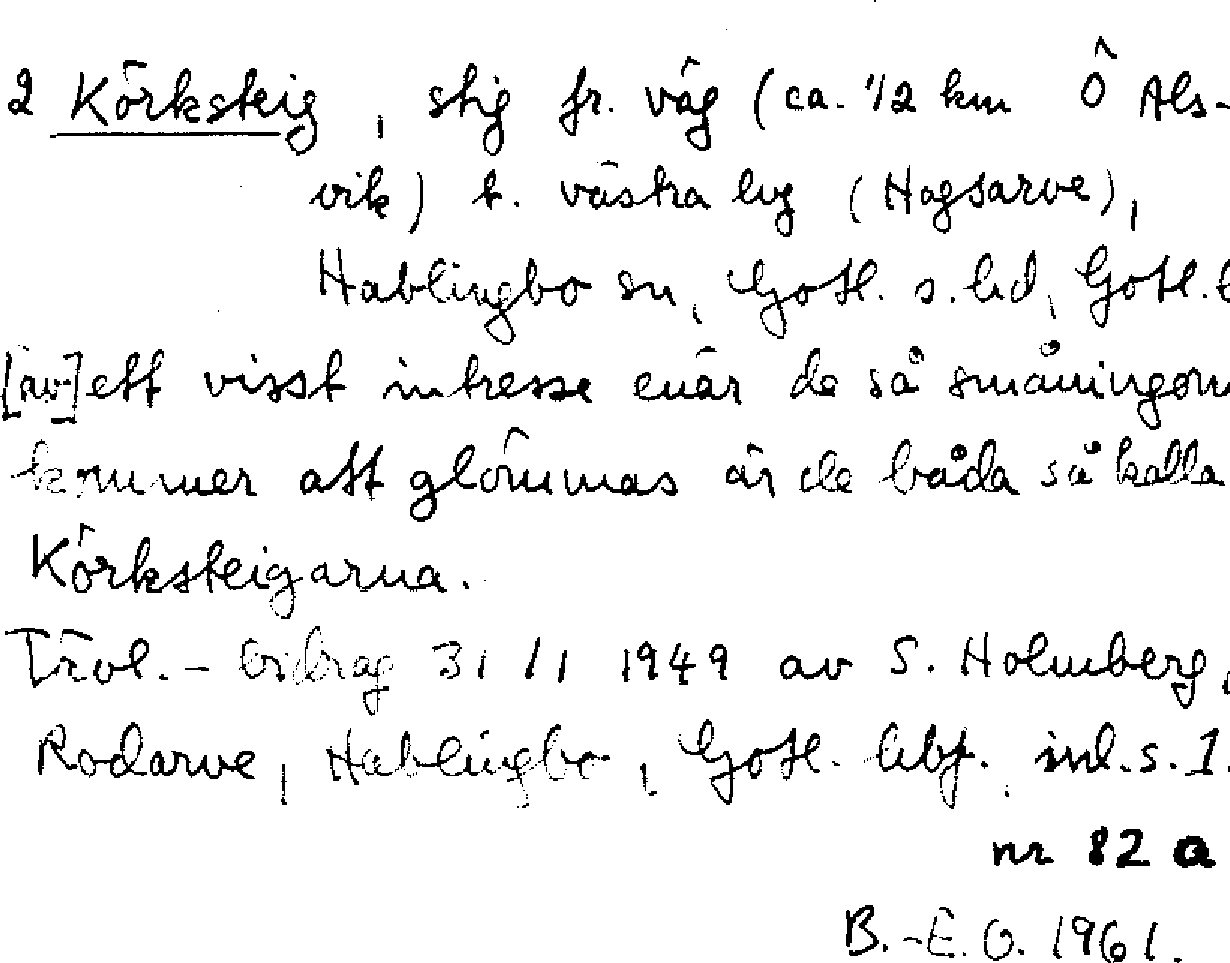 2 Körksteig, stig fr. väg (ca. 1/2 km Ö Als-
vik) t. västra lvg (Hagsarve),
Hablingbo sn, Gotl. s. hd, Gotl.
[av] ett visst intresse enär de så småningom
kommer att glömmas är de båda så kalla
Körksteigarna.
Trol. - bidrag 31/1 1949 av S. Holmberg,
Rodarve, Hablingbo, Gotl. hbf. inl. s. 1.
nr 82 a
B.-E. O. 1961.